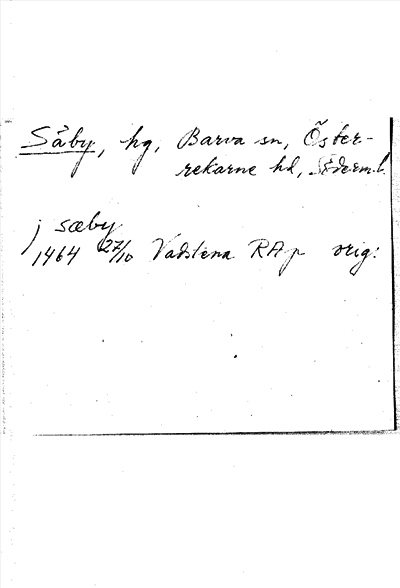 Säby, hg, Barva sn, Öster-
rekarne hd, Söderml.
j sæby
1464 27/10 Vadstena RAp orig: